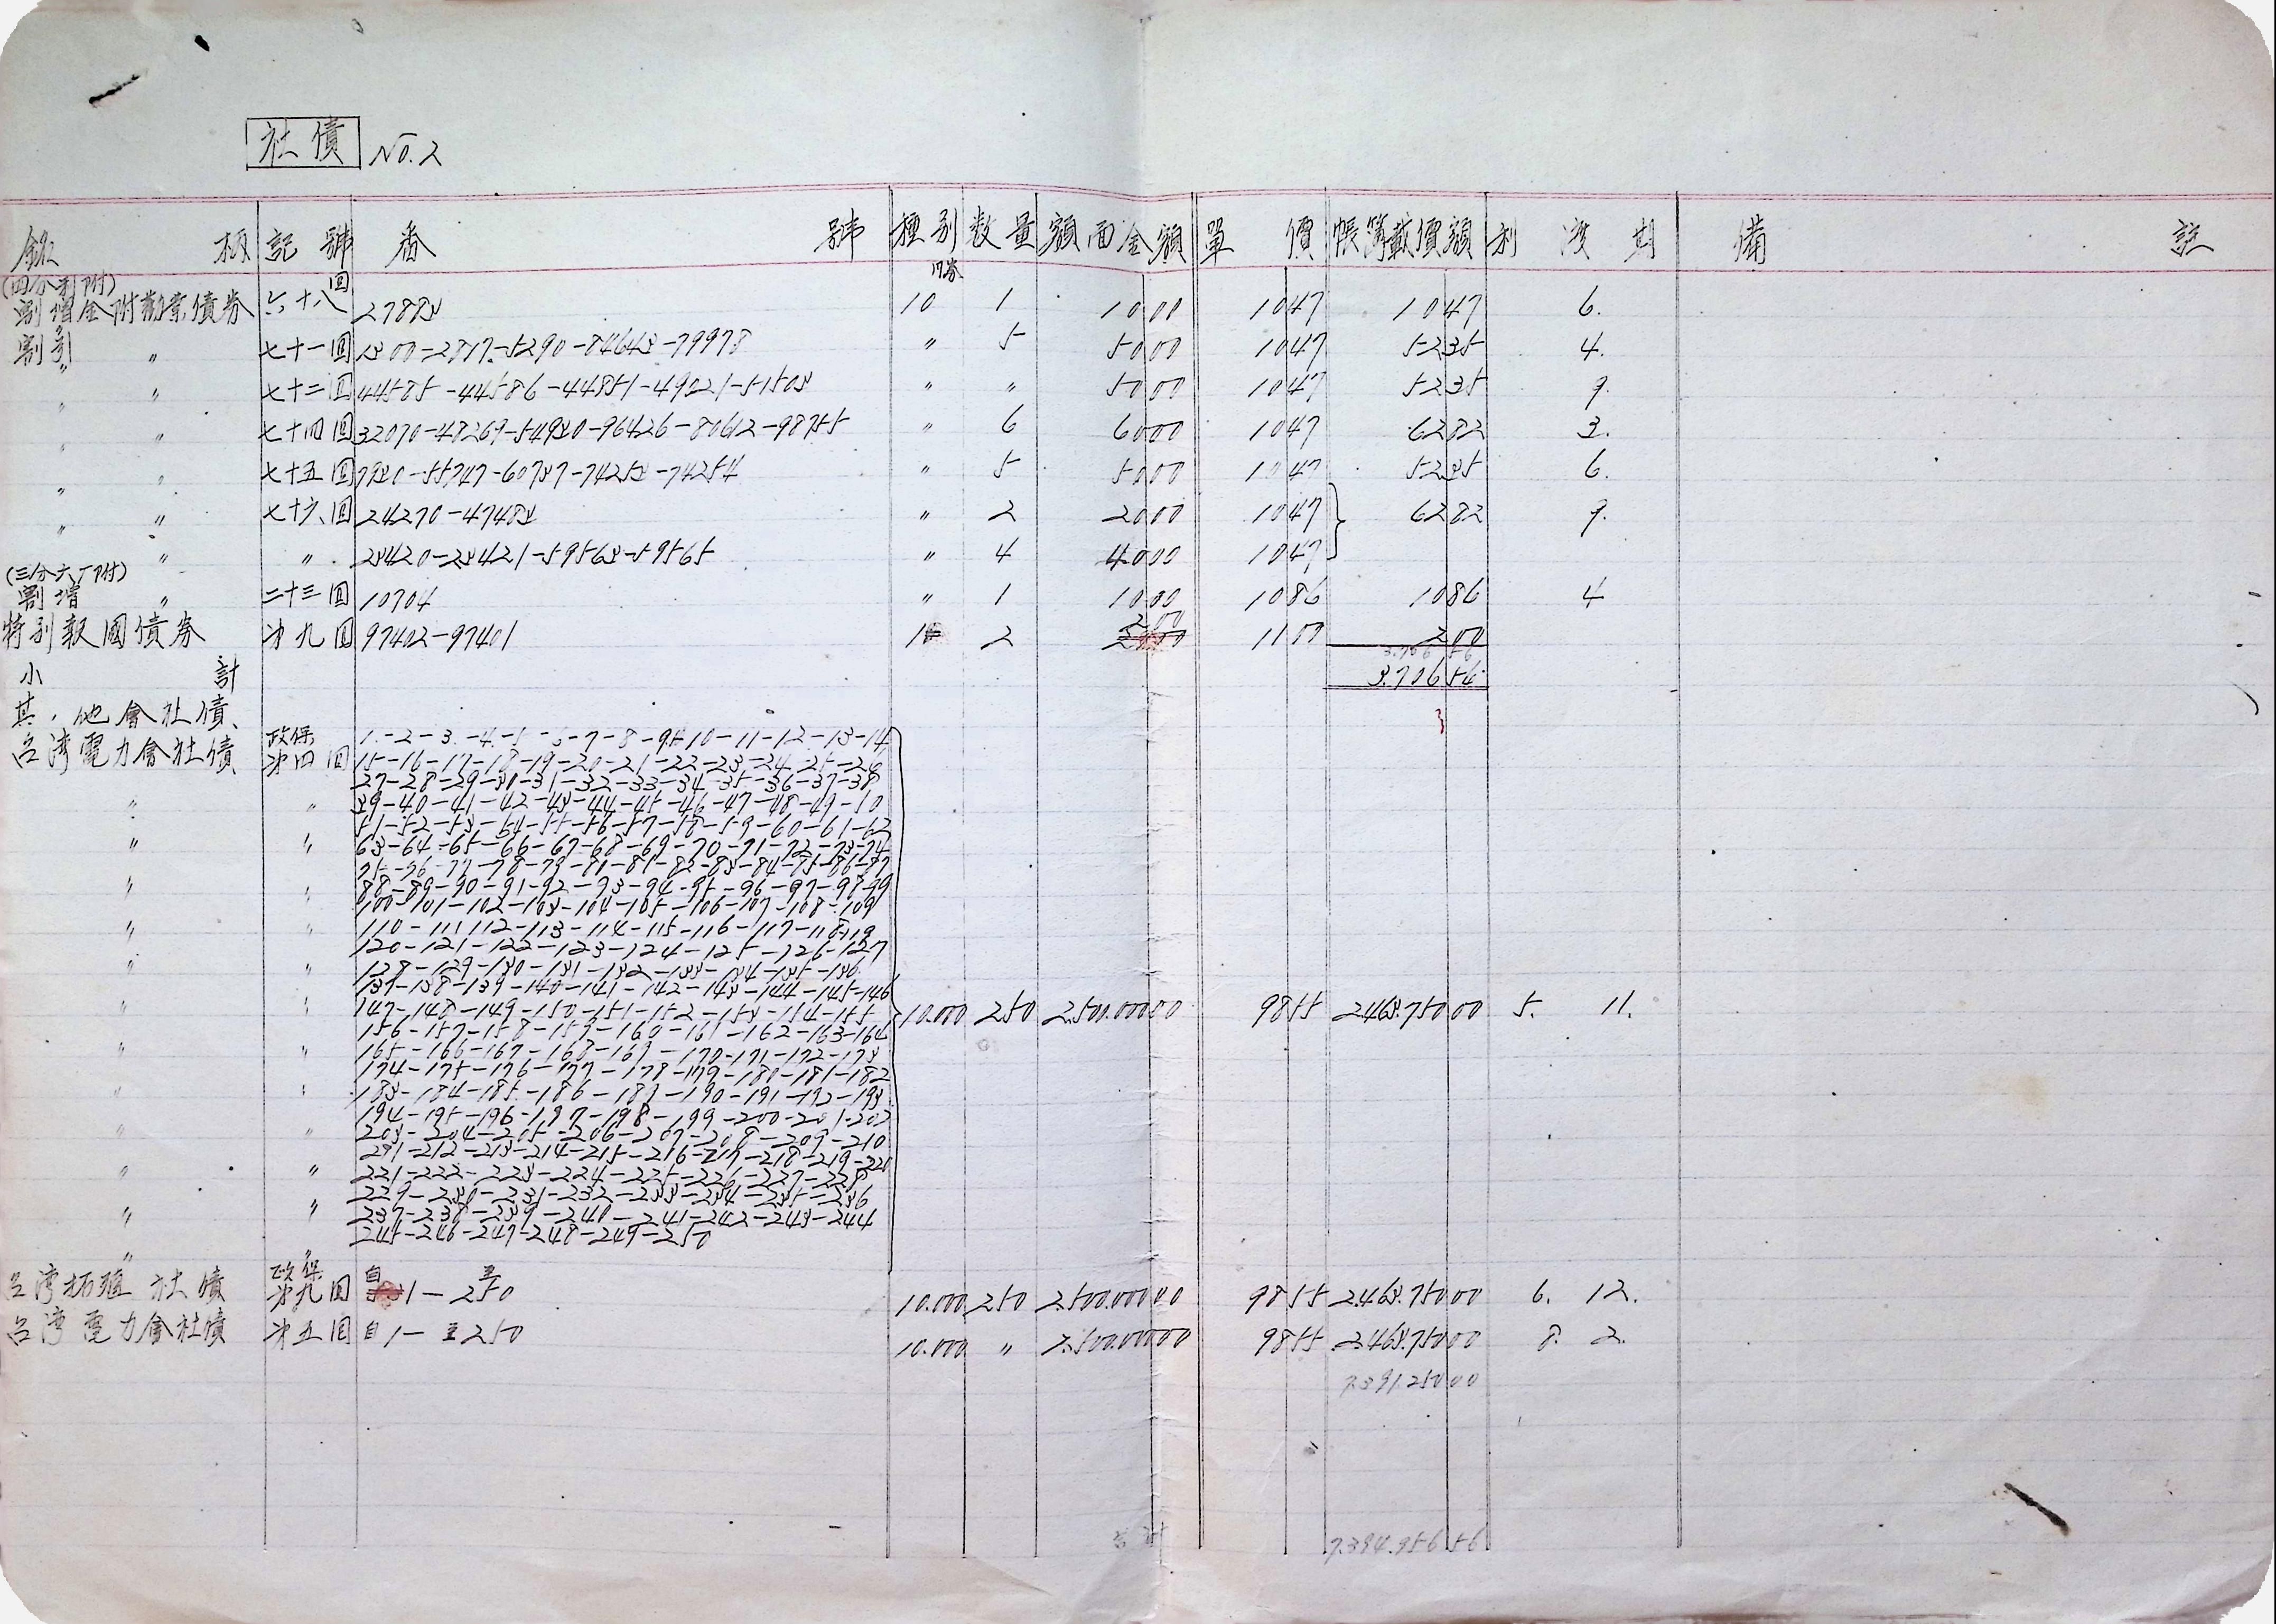 社債 No.2
銘 柄 記 號 番 號 種別 数量 額面金額 單 價 帳簿載價額 利 渡 期 備 註
(四分利附) 回 円券
割増金附勸業債券 六十八 27893 10 1 1000 1047 1047 6.
割引 〃 七十一回 1300-2817-5290-84643-79978 〃 5 5000 1047 5235 4.
〃 〃 七十二回 44585-44586-44851-49021-51503 〃 〃 5000 1047 5235 9.
〃 〃 七十四回 32070-48269-54930-96426-80612-98755 〃 6 6000 1047 6282 3.
〃 〃 七十五回 7930-55747-60737-74253-74254 〃 5 5000 1047 5235 6.
〃 〃 七十六回 24270-47483 〃 2 2000 1047 6282 9.
〃 〃 〃 23420-23421-59563-59565 〃 4 4000 1047
(三分六厂附)
割増 〃 二十三回 10704 〃 1 1000 1086 1086 4
特別報國債券 第九回 97402-97401 2 200 1100 200
小 計 3.70656
其ノ他會社債、
台湾電力會社債 政保第四回 1-2-3-4-5-6-7-8-9-10-11-12-13-14
15-16-17-18-19-20-21-22-23-24-25-26
27-28-29-30-31-32-33-34-35-36-37-38
〃 〃 39-40-41-42-43-44-45-46-47-48-49-50
51-52-53-54-55-56-57-58-59-60-61-62
〃 〃 63-64-65-66-67-68-69-70-71-72-73-74
75-76-77-78-79-80-81-82-83-84-85-86-87
〃 〃 88-89-90-91-92-93-94-95-96-97-98-99
100-101-102-103-104-105-106-107-108-109
〃 〃 110-111112-113-114-115-116-117-118-119
120-121-122-123-124-125-126-127
〃 〃 128-129-130-131-132-133-134-135-136
137-138-139-140-141-142-143-144-145-146
〃 〃 147-148-149-150-151-152-153-154-155 10.000 250 2.500.00000 9855 2.463.75000 5. 11.
156-157-158-159-160-161-162-163-164
〃 〃 165-166-167-168-169-170-171-172-173
174-175-176-177-178-179-180-181-182
〃 〃 183-184-185-186-187-190-191-192-193
194-195-196-197-198-199-200-201-202
〃 〃 203-204-205-206-207-208-209-210
211-212-213-214-215-216-217-218-219-221
〃 〃 221-222-223-224-225-226-227-228
229-230-231-232-233-234-235-236
〃 〃 237-238-239-240-241-242-243-244
245-246-247-248-249-250
〃 〃
台湾拓殖社債 政保第九回 自1-至250 10.000 250 2.500.00000 9855 2.463.75000 6. 12.
台湾電力會社債 第五回 自1-至250 10.000 〃 2.500.00000 9855 2.463.75000 8. 2.
7.391.25000
7.394.95656